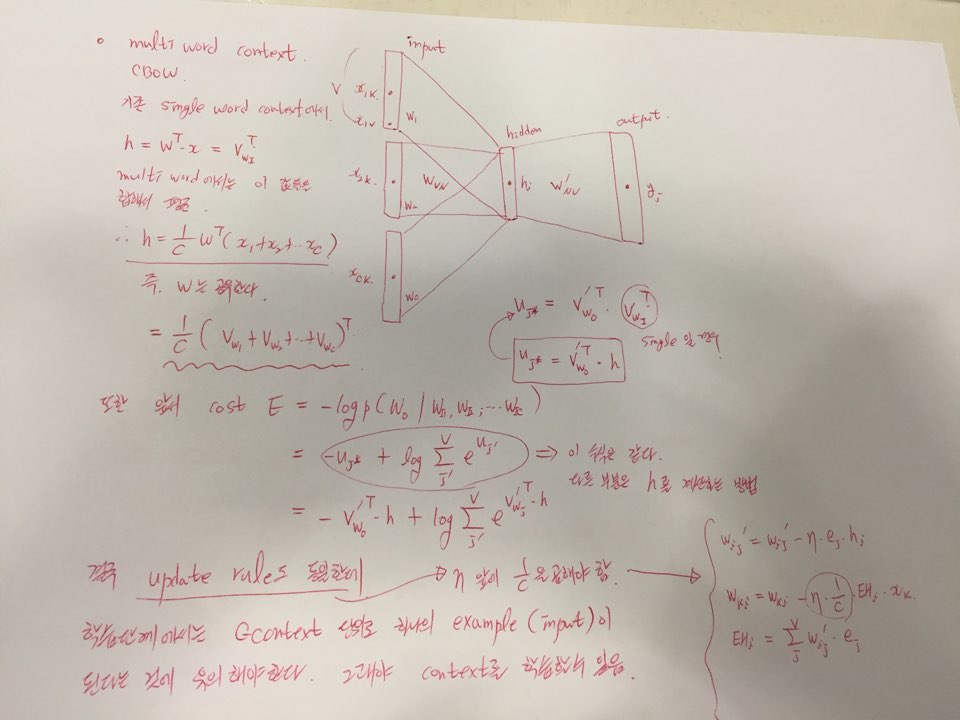 multi word context.
CBOW.
기존 single word context에서.
h = W^T · x = V_{W_I}^T
multi word에서는 이 값들을
합해서 평균.
∴ h = 1/C W^T (x_1 + x_2 + ... x_C)
즉. W는 공유한다.
= 1/C (V_{W_1} + V_{W_2} + ... + V_{W_C})^T
input
V
x_{1k}
x_{1V}
W_1
x_{2k}
W_2
x_{Ck}
W_C
W_{VN}
hidden
h_i
W'_{NV}
output.
y_j
u_{j*} = V'_{W_O}^T · V_{W_I}^T
single 일 경우
u_{j*} = V'_{W_O}^T · h
또한 앞서 cost E = -log p(W_O | W_{I1}, W_{I2}, ... W_{IC})
= -u_{j*} + log Σ_{j'}^V e^{u_{j'}} ⇒ 이 수식은 같다.
다른 부분은 h를 계산하는 방법
= -V'_{W_O}^T · h + log Σ_{j'}^V e^{V'_{W_j}^T · h}
결국 update rules 동일한데 → η 앞에 1/C 을 곱해야 함. →
w'_{ij} = w'_{ij} - η · e_j · h_i
w_{ki} = w_{ki} - η · 1/C · EH_i · x_k.
EH_i = Σ_j^V w'_{ij} · e_j
학습단계에서는 context 단위로 하나의 example (input)이
된다는 것에 유의해야한다. 그래야 context를 학습할수 있음.